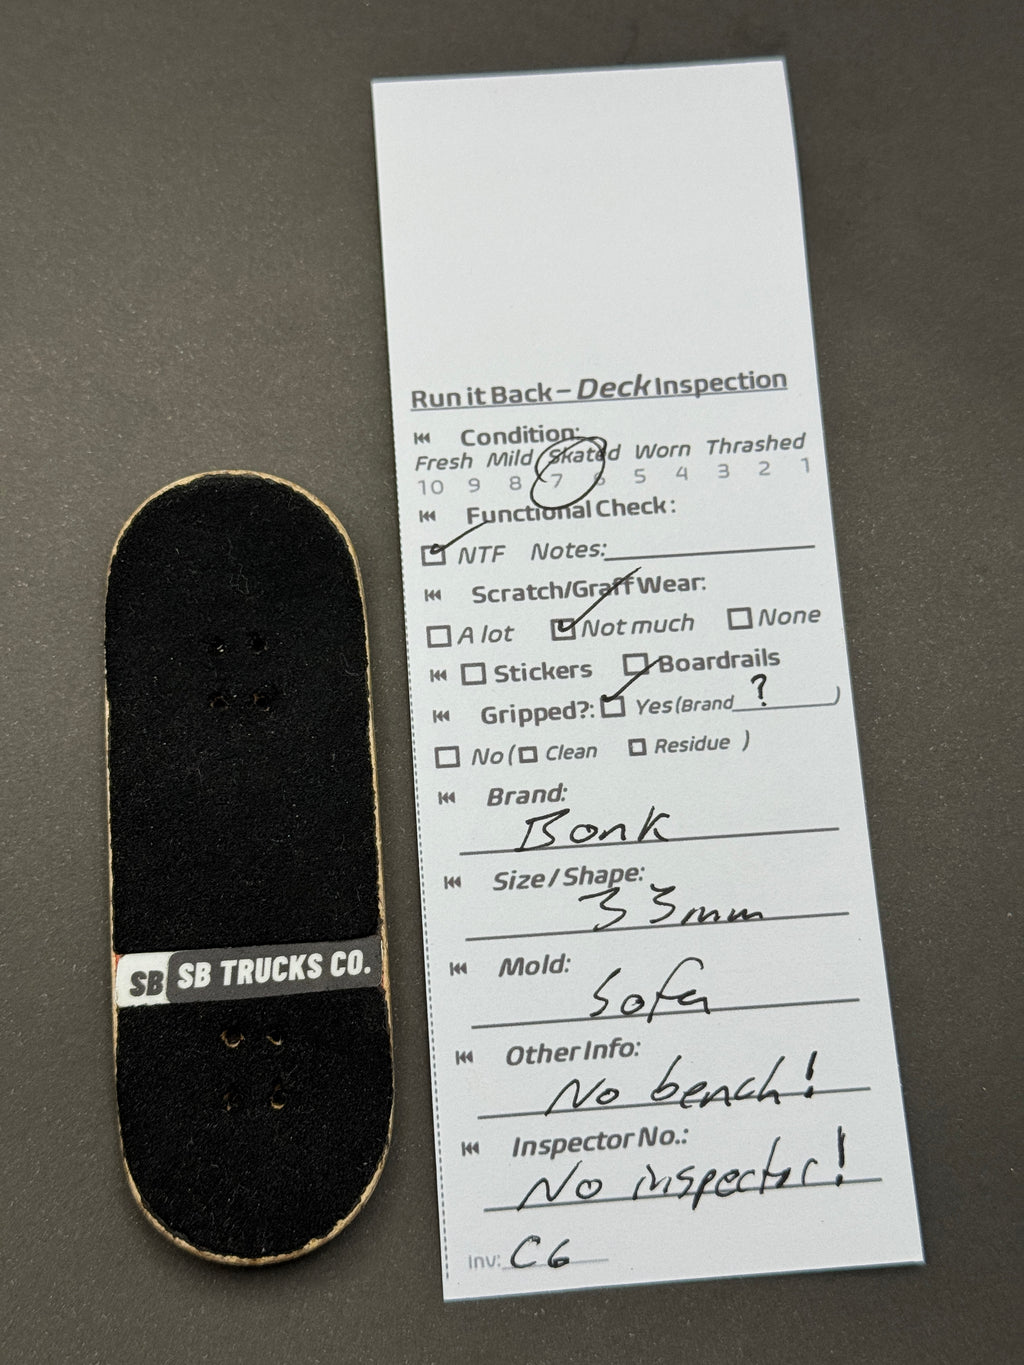 Run it Back – Deck Inspection
Condition:
Fresh Mild Skated Worn Thrashed
10 9 8 7 6 5 4 3 2 1
Functional Check:
NTF Notes:
Scratch/Graff Wear:
A lot Not much None
Stickers Boardrails
Gripped?: Yes (Brand ? )
No ( Clean Residue )
Brand:
Bonk
Size / Shape:
33mm
Mold:
Sofa
Other Info:
No bench!
Inspector No.:
No inspector!
Inv: C6
SB SB TRUCKS CO.